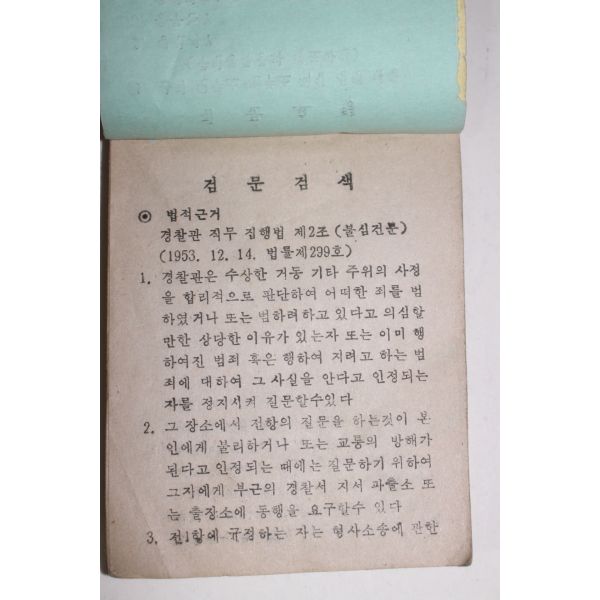 검 문 검 색
◉ 법적근거
경찰관 직무 집행법 제2조 (불심전문)
(1953. 12. 14. 법률제299호)
1. 경찰관은 수상한 거동 기타 주위의 사정
을 합리적으로 판단하여 어떠한 죄를 범
하였거나 또는 범하려하고 있다고 의심할
만한 상당한 이유가 있는자 또는 이미 행
하여진 범죄 혹은 행하여 지려고 하는 범
죄에 대하여 그 사실을 안다고 인정되는
자를 정지시켜 질문할수있다
2. 그 장소에서 전항의 질문을 하는것이 본
인에게 불리하거나 또는 교통의 방해가
된다고 인정되는 때에는 질문하기 위하여
그자에게 부근의 경찰서 지서 파출소 또
는 출장소에 동행을 요구할수 있다
3. 전1항에 규정하는 자는 형사소송에 관한